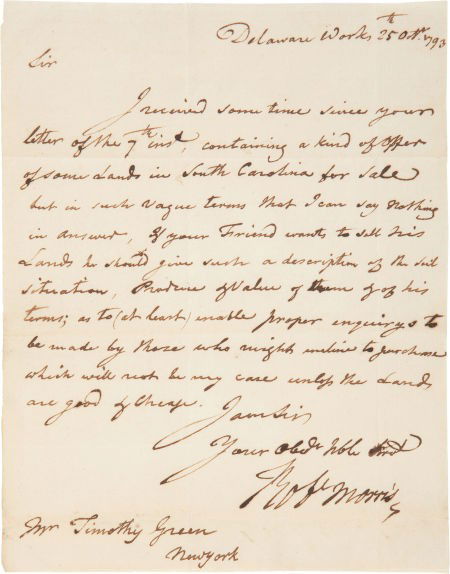 Delaware Works 25th Octr. 1793
Sir
I received some time since your
letter of the 7th inst, containing a kind of offer
of some Lands in South Carolina for sale
but in such vague terms that I can say nothing
in answer, If your Friend wants to sell his
Lands he should give such a description of the soil
situation, Produce & Value of them & of his
terms; as to (at least) enable proper enquirys to
be made by those who might incline to purchase
which will not be my case unless the Lands
are good & Cheap.
I am Sir
Your Obedt. Hble Servt
Robt Morris
Mr Timothy Green
Newyork